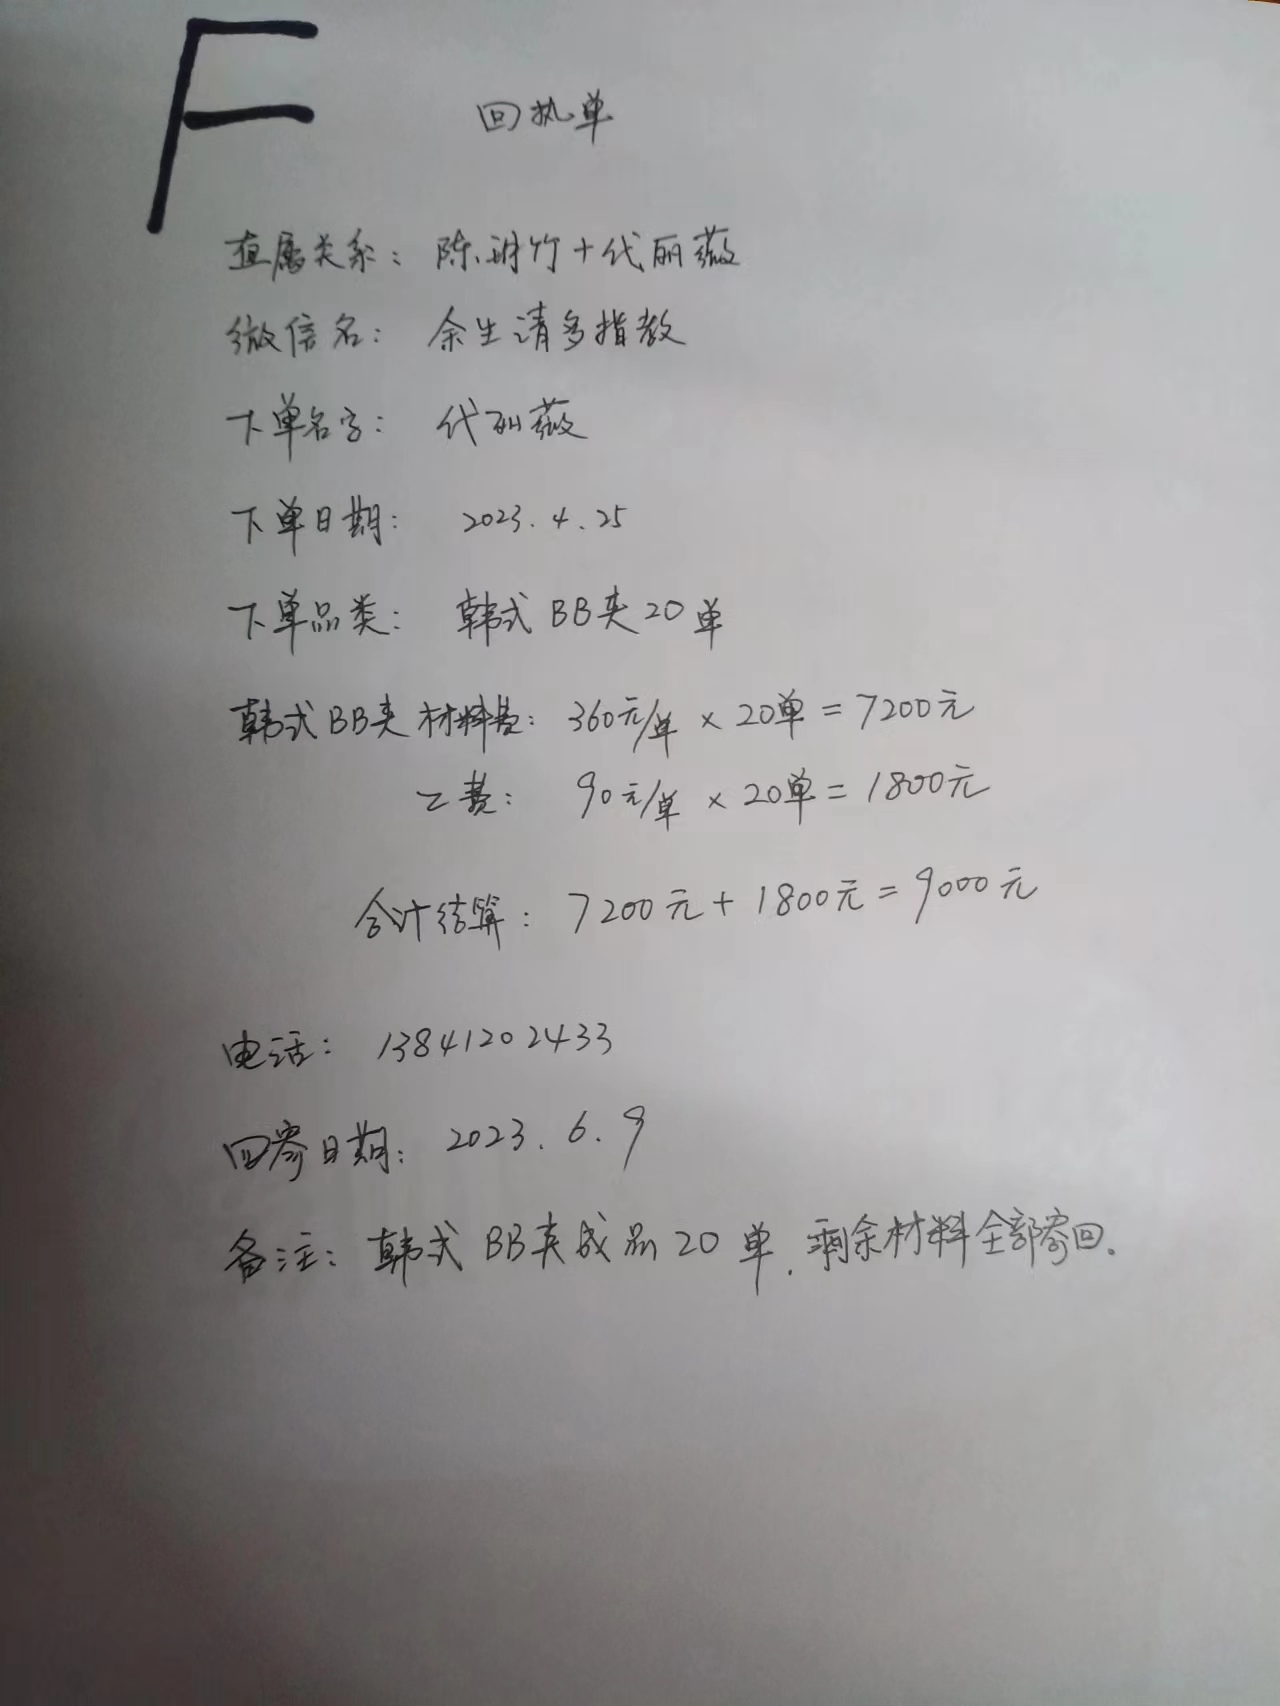 F
回执单
直属关系：陈玥竹+代丽薇
微信名：余生请多指教
下单名字：代丽薇
下单日期：2023.4.25
下单品类：韩式BB夹20单
韩式BB夹材料费：360元/单×20单=7200元
工费：90元/单×20单=1800元
合计结算：7200元+1800元=9000元
电话：13841202433
回寄日期：2023.6.9
备注：韩式BB夹成品20单.剩余材料全部寄回.